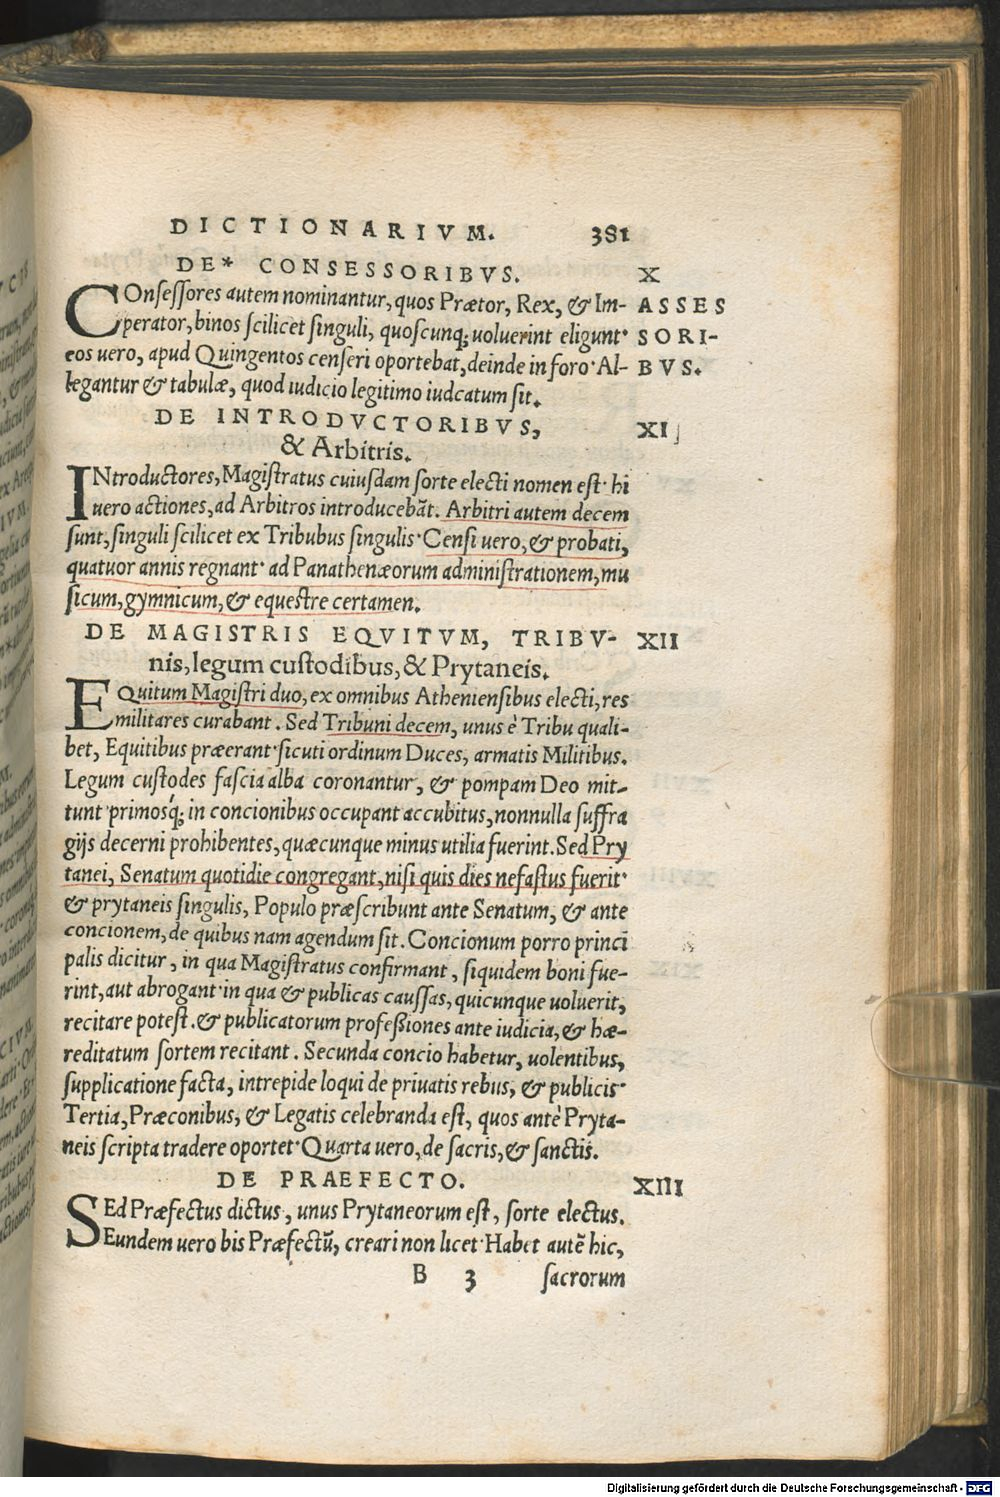 DICTIONARIVM. 381
DE* CONSESSORIBVS. X
COnsessores autem nominantur, quos Prætor, Rex, & Im- ASSES
perator, binos scilicet singuli, quoscunq; uoluerint eligunt· SORI-
eos uero, apud Quingentos censeri oportebat, deinde in foro· Al- BVS.
legantur & tabulæ, quod iudicio legitimo iudcatum sit.
DE INTRODVCTORIBVS, XI
& Arbitris.
INtroductores, Magistratus cuiusdam sorte electi nomen est· hi
uero actiones, ad Arbitros introducebāt. Arbitri autem decem
sunt, singuli scilicet ex Tribubus singulis· Censi uero, & probati,
quatuor annis regnant· ad Panathenæorum administrationem, mu
sicum, gymnicum, & equestre certamen.
DE MAGISTRIS EQVITVM, TRIBV- XII
nis, legum custodibus, & Prytaneis.
EQuitum Magistri duo, ex omnibus Atheniensibus electi, res
militares curabant. Sed Tribuni decem, unus è Tribu quali-
bet, Equitibus præerant· sicuti ordinum Duces, armatis Militibus.
Legum custodes fascia alba coronantur, & pompam Deo mit-
tunt· primosq́; in concionibus occupant accubitus, nonnulla suffra
gijs decerni prohibentes, quæcunque minus utilia fuerint. Sed Pry
tanei, Senatum quotidie congregant, nisi quis dies nefastus fuerit·
& prytaneis singulis, Populo præscribunt ante Senatum, & ante
concionem, de quibus nam agendum sit. Concionum porro princi
palis dicitur, in qua Magistratus confirmant, siquidem boni fue-
rint, aut abrogant· in qua & publicas caussas, quicunque uoluerit,
recitare potest. & publicatorum professiones ante iudicia, & hæ-
reditatum sortem recitant. Secunda concio habetur, uolentibus,
supplicatione facta, intrepide loqui de priuatis rebus, & publicis·
Tertia, Præconibus, & Legatis celebranda est, quos antè Pryta-
neis scripta tradere oportet· Quarta uero, de sacris, & sanctis.
DE PRAEFECTO. XIII
SEd Præfectus dictus, unus Prytaneorum est, sorte electus.
Eundem uero bis Præfectū, creari non licet· Habet autē hic,
B 3 sacrorum
Digitalisierung gefördert durch die Deutsche Forschungsgemeinschaft - DFG